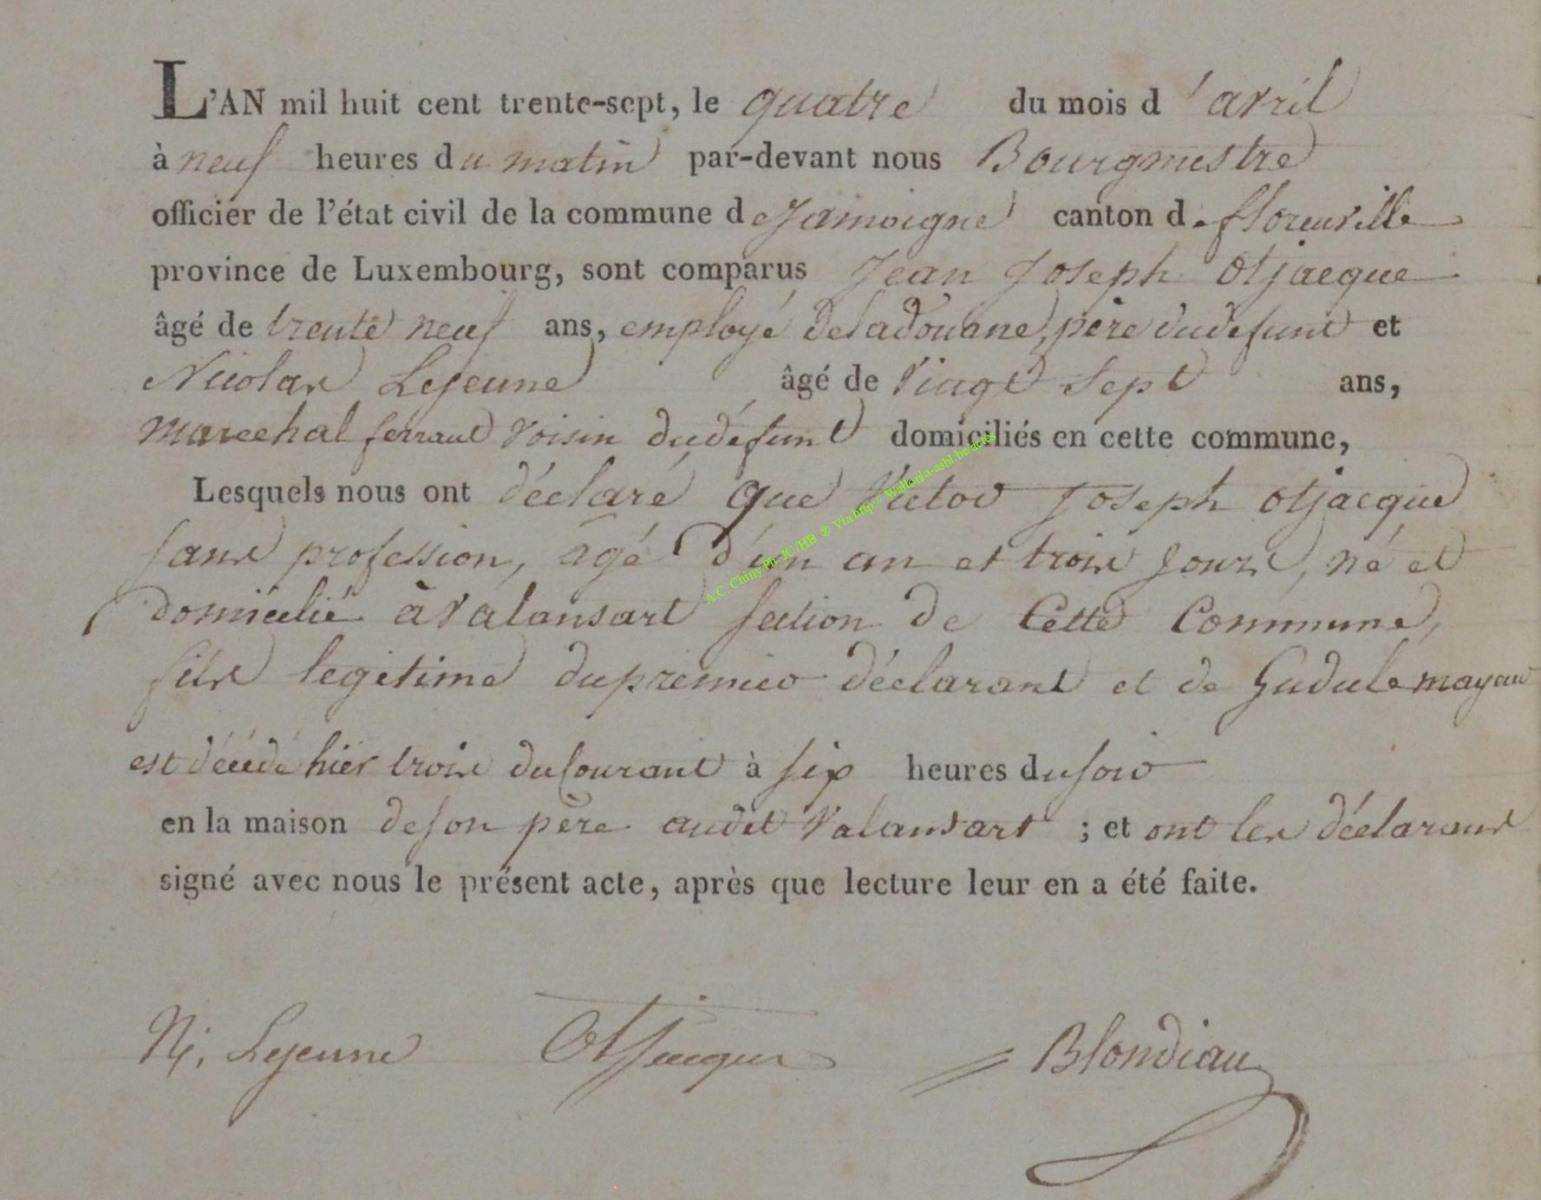 L'AN mil huit cent trente-sept, le quatre du mois d'avril
à neuf heures du matin par-devant nous Bourgmestre
officier de l'état civil de la commune de Jamoigne canton de florenville
province de Luxembourg, sont comparus Jean Joseph Otjacque
âgé de trente neuf ans, employé de la douane, père du défunt et
Nicolas Lejeune âgé de vingt sept ans,
marechal ferrant voisin du défunt domiciliés en cette commune,
Lesquels nous ont déclaré que Victor Joseph Otjacque
sans profession, âgé d'un an et trois jours, né et
domicilié à Valansart section de cette commune,
fils legitime du premier déclarant et de Gudule mayau
est décédé hier trois du courant à six heures du soir
en la maison de son père audit Valansart ; et ont les déclarans
signé avec nous le présent acte, après que lecture leur en a été faite.
N. Lejeune Otjacque Blondiau